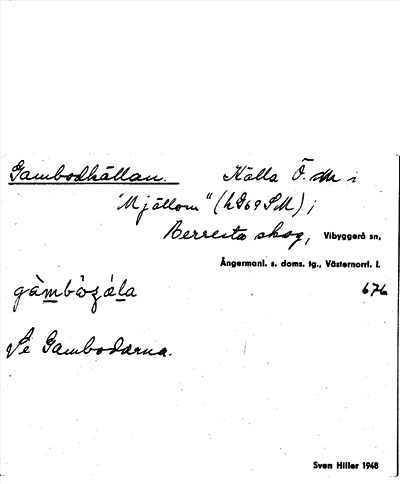 Gambodkällan. Källa Ö. om i
"Mjällom" (hG69SM) i
Berresta skog, Vibyggerå sn,
Ångermanl. s. doms. tg., Västernorrl. l.
676
Se Gambodarna.
Sven Hiller 1948